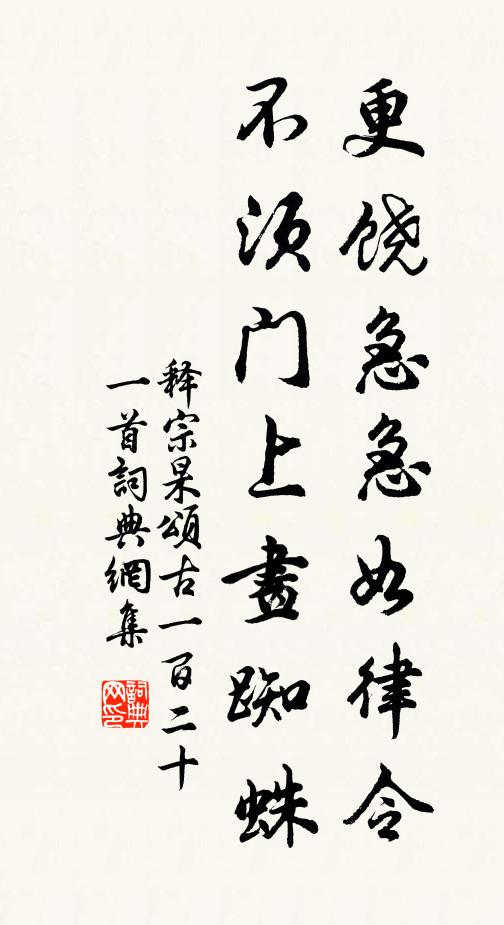 更饶急急如律令
不须门上畫蜘蛛
释宗杲頌古一百二十
一首詞典網集
詞典
网印